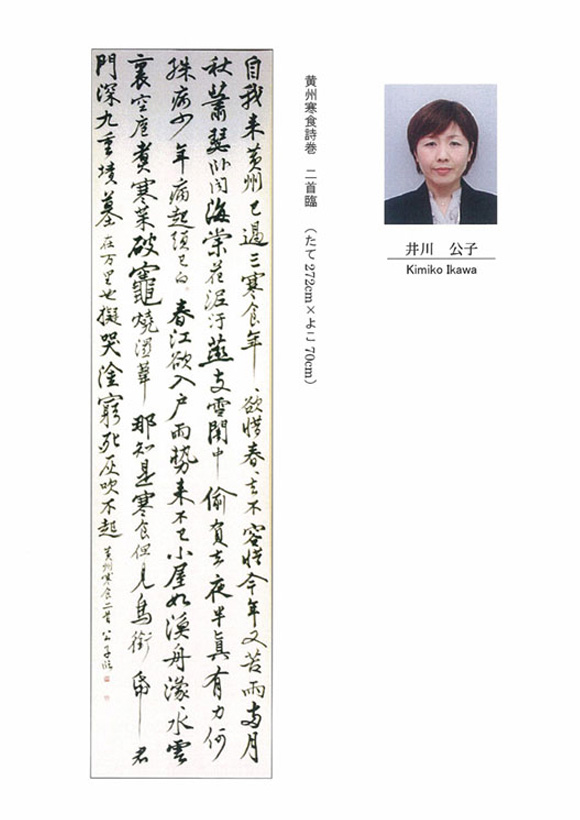 井川　公子
Kimiko Ikawa
黄州寒食詩巻　二首臨　（たて 272cm×よこ 70cm）
自我来黄州已過三寒食年、欲惜春、去不容惜今年又苦雨兩月
秋蕭瑟卧聞海棠花泥汙燕支雪闇中偷負去夜半真有力何
殊病少年病起頭已白 春江欲入户雨勢来不已小屋如漁舟濛、水雲
裏空庖煑寒菜破竈燒濕葦那知是寒食但見烏銜帋君
門深九重墳墓在万里也擬哭塗窮死灰吹不起 黄州寒食二首 公子臨